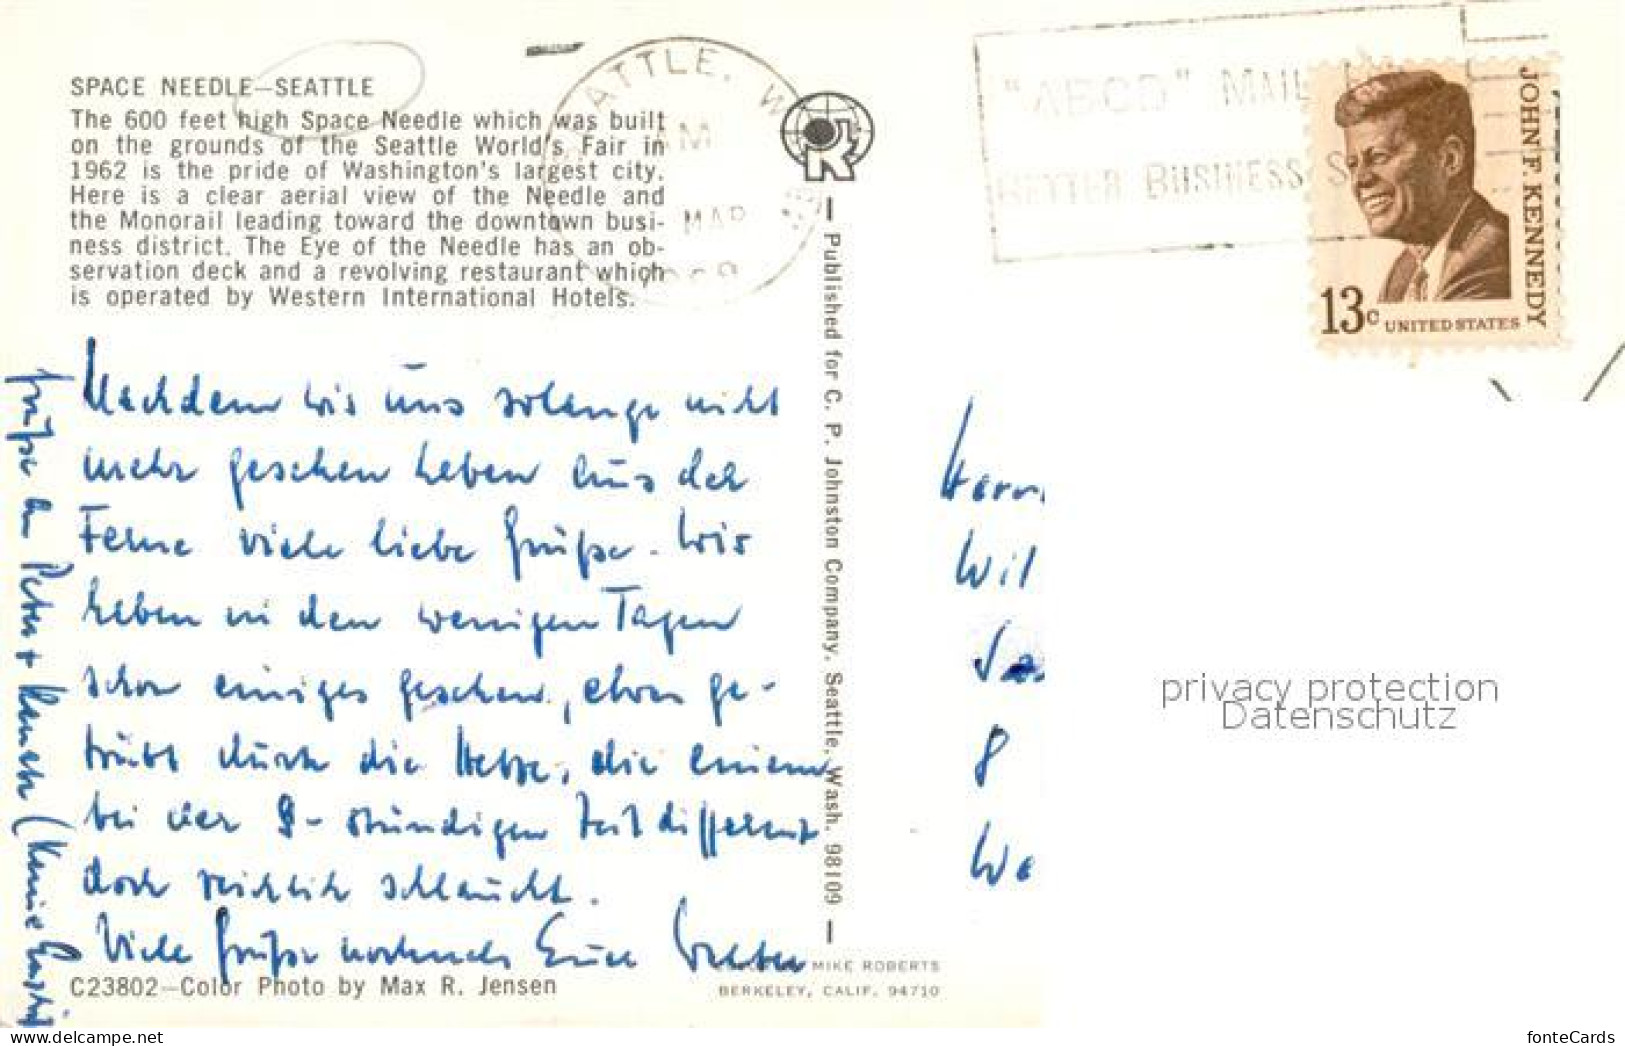 SPACE NEEDLE—SEATTLE
The 600 feet high Space Needle which was built
on the grounds of the Seattle World's Fair in
1962 is the pride of Washington's largest city.
Here is a clear aerial view of the Needle and
the Monorail leading toward the downtown busi-
ness district. The Eye of the Needle has an ob-
servation deck and a revolving restaurant which
is operated by Western International Hotels.
Nachdem wir uns solange nicht
mehr gesehen haben aus der
Ferne viele liebe Grüße. Wir
haben in den wenigen Tagen
schon einiges gesehen, etwas ge-
trübt durch die Hetze, die einem
bei der 9-stündigen Zeitdifferenz
doch reichlich schlaucht.
Viele Grüße nochmals Eure
Grüße an Peter +
C23802—Color Photo by Max R. Jensen
MIKE ROBERTS
BERKELEY, CALIF. 94710
— Published for C. P. Johnston Company, Seattle, Wash. 98109 —
ATTLE, W
MAR
"ABCD" MAIL
BETTER BUSINESS
JOHN F. KENNEDY
13c UNITED STATES
Wil
8
We
privacy protection
Datenschutz
delcampe.net
fonteCards